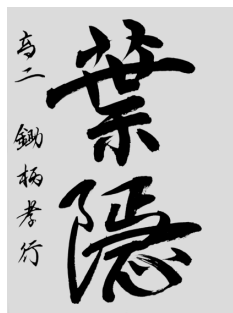 葉隠
高二 鋤柄孝行